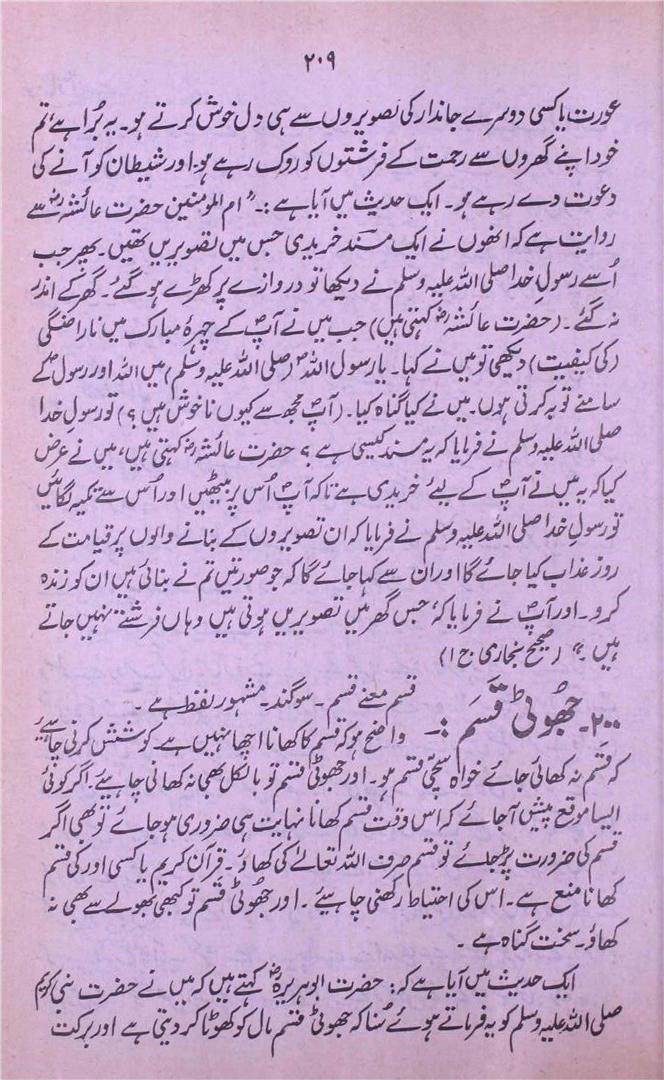 ۲۰۹
عورت یا کسی دوسرے جاندار کی تصویروں سے ہی دل خوش کرتے ہو۔ یہ بُرا ہے، تم
خود اپنے گھروں سے رحمت کے فرشتوں کو روک رہے ہو، اور شیطان کو آنے کی
دعوت دے رہے ہو۔ ایک حدیث میں آیا ہے :۔ " ام المومنین حضرت عائشہؓ سے
روایت ہے کہ انھوں نے ایک مسند خریدی جس میں تصویریں تھیں۔ پھر جب
اُسے رسولِ خدا صلی اللہ علیہ وسلم نے دیکھا تو دروازے پر کھڑے ہو گئے۔ گھر کے اندر
نہ گئے۔ (حضرت عائشہؓ کہتی ہیں) جب میں نے آپؐ کے چہرۂ مبارک میں ناراضگی
(کی کیفیت) دیکھی تو میں نے کہا۔ یا رسول اللہؐ (صلی اللہ علیہ وسلم) میں اللہ اور رسولؐ کے
سامنے توبہ کرتی ہوں۔ میں نے کیا گناہ کیا۔ (آپؐ مجھ سے کیوں ناخوش ہیں؟) تو رسول خدا
صلی اللہ علیہ وسلم نے فرمایا کہ یہ مسند کیسی ہے؟ حضرت عائشہؓ کہتی ہیں، میں نے عرض
کیا کہ یہ میں نے آپؐ کے لیے خریدی ہے تاکہ آپؐ اُس پر بیٹھیں اور اُس سے تکیہ لگائیں
تو رسولِ خدا صلی اللہ علیہ وسلم نے فرمایا کہ ان تصویروں کے بنانے والوں پر قیامت کے
روز عذاب کیا جائے گا اور ان سے کہا جائے گا کہ جو صورتیں تم نے بنائی ہیں ان کو زندہ
کرو۔ اور آپؐ نے فرمایا کہ جس گھر میں تصویریں ہوتی ہیں وہاں فرشتے نہیں جاتے
ہیں۔" (صحیح بخاری ج ۱)
۲۰۰۔ جھُوٹی قَسَم :۔ قسم معنے قسم۔ سوگند۔ مشہور لفظ ہے۔
واضح ہو کہ قسم کا کھانا اچھا نہیں ہے۔ کوشش کرنی چاہیے
کہ قسم نہ کھائی جائے خواہ سچی قسم ہو۔ اور جھوٹی قسم تو بالکل بھی نہ کھانی چاہیے۔ اگر کوئی
ایسا موقع پیش آجائے کہ اس وقت قسم کھانا نہایت ہی ضروری ہو جائے تو بھی اگر
قسم کی ضرورت پڑ جائے تو قسم صرف اللہ تعالےٰ کی کھاؤ۔ قرآن کریم یا کسی اور کی قسم
کھانا منع ہے۔ اس کی احتیاط رکھنی چاہیے۔ اور جھُوٹی قسم تو کبھی بھولے سے بھی نہ
کھاؤ۔ سخت گناہ ہے۔
ایک حدیث میں آیا ہے کہ: حضرت ابوہریرہؓ کہتے ہیں کہ میں نے حضرت نبی کریم
صلی اللہ علیہ وسلم کو یہ فرماتے ہوئے سُنا کہ جھوٹی قسم مال کو کھوٹا کر دیتی ہے اور برکت